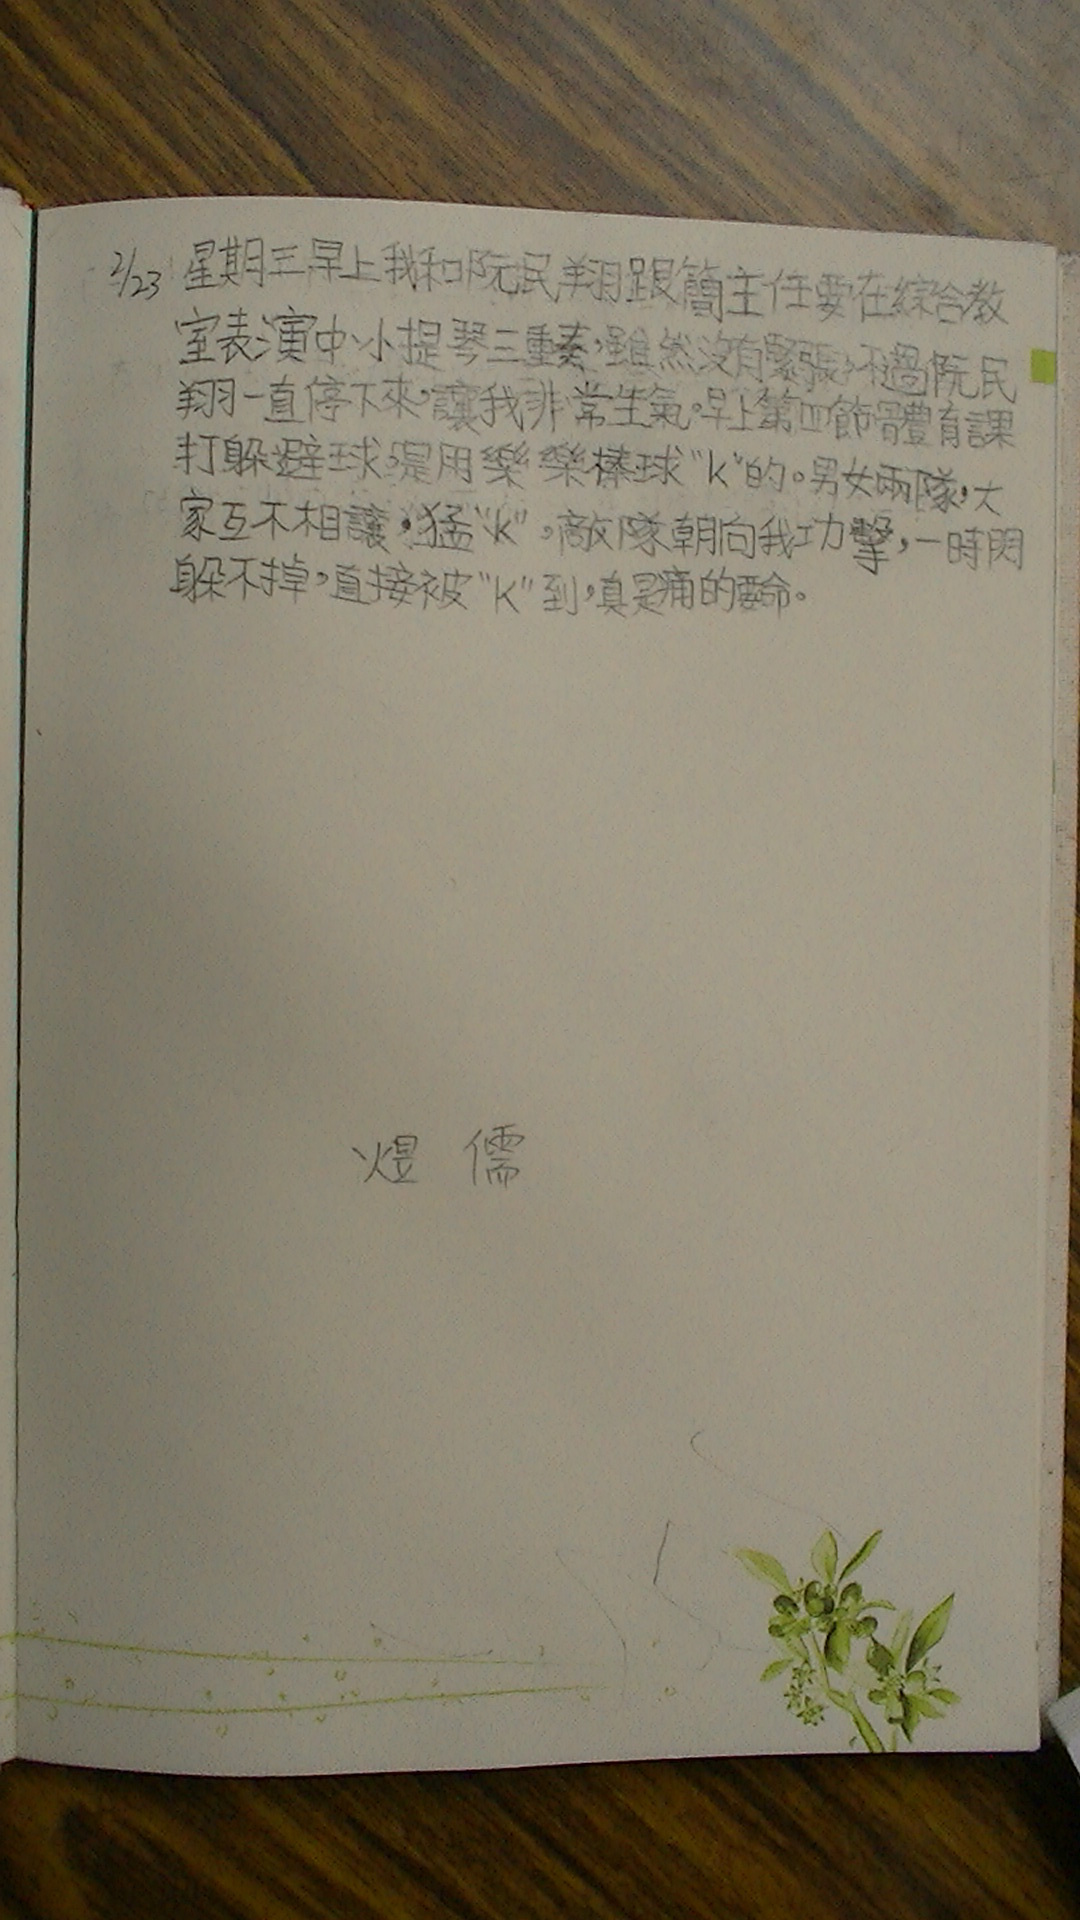 2/23 星期三早上我和阮民翔跟簡主任要在綜合教
室表演中小提琴三重奏,雖然沒有緊張,不過阮民
翔一直停下來,讓我非常生氣。早上第四節體育課
打躲避球,是用樂樂棒球"K"的。男女兩隊,大
家互不相讓,猛"K"。敵隊朝向我功擊,一時閃
躲不掉,直接被"K"到,真是痛的要命。
煜 儒